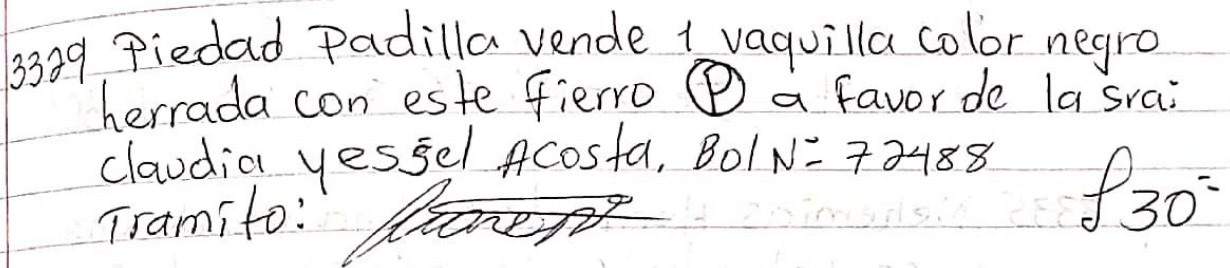 3329 Piedad Padilla vende 1 vaquilla color negro
herrada con este fierro Ⓟ a favor de la sra:
claudia yessel Acosta. Bol Nº 72488
Tramito:
£30=